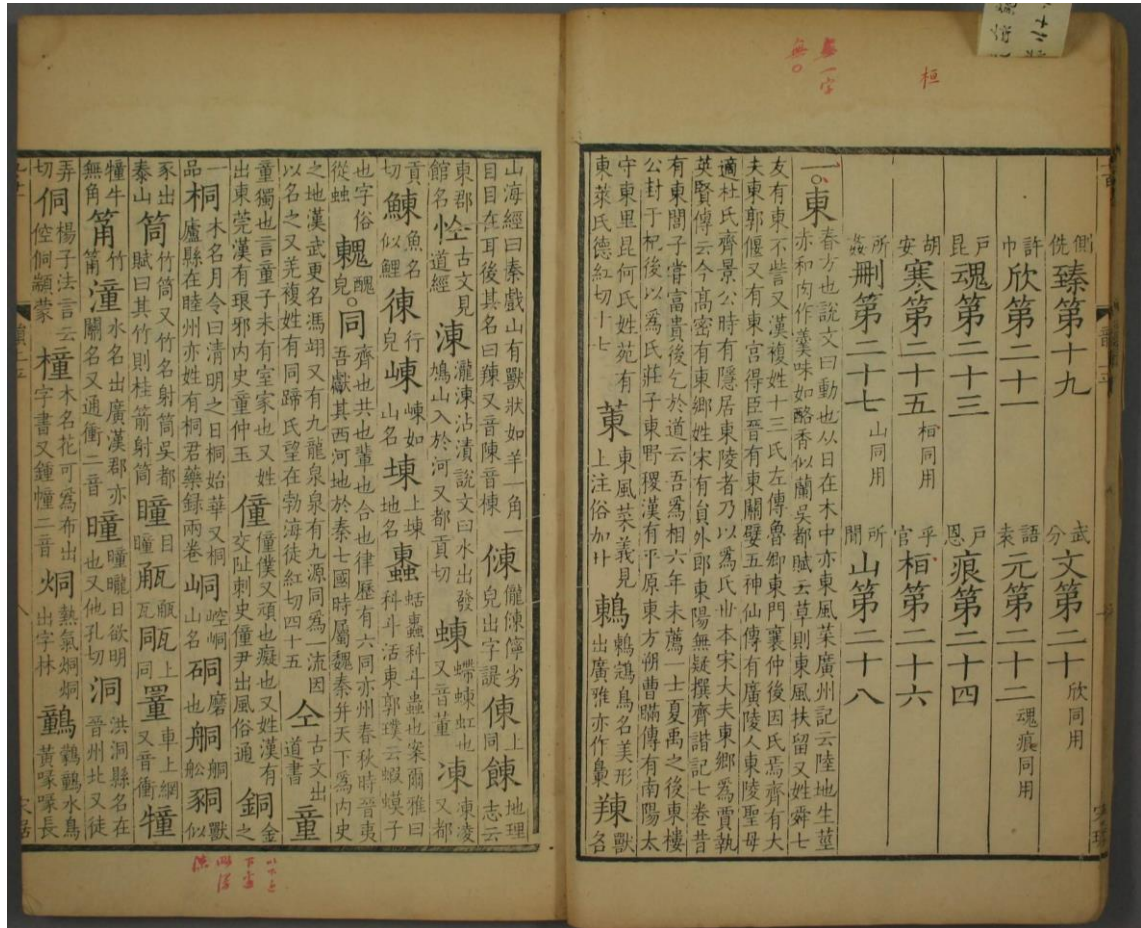 側詵臻第十九
武分文第二十欣同用
許巾欣第二十一
語袁元第二十二魂痕同用
戸昆魂第二十三
戸恩痕第二十四
胡安寒第二十五桓同用
乎官桓第二十六
所姦刪第二十七山同用
所閒山第二十八
一〇東春方也說文曰動也从日在木中亦東風菜廣州記云陸地生莖
赤和肉作羹味如酪香似蘭吳都賦云草則東風扶留又姓舜七
友有東不訾又漢複姓十三氏左傳魯卿東門襄仲後因氏焉齊有大
夫東郭偃又有東宮得臣晉有東關嬖五神仙傳有廣陵人東陵聖母
適杜氏齊景公時有隱居東陵者乃以爲氏世本宋大夫東鄉爲賈執
英賢傳云今高密有東鄉姓宋有貟外郎東陽無疑撰齊諧記七卷昔
有東閭子嘗富貴後乞於道云吾爲相六年未薦一士夏禹之後東樓
公封于杞後以爲氏莊子東野稷漢有平原東方朔曹瞞傳有南陽太
守東里昆何氏姓苑有東萊氏德紅切十七
菄東風菜義見上注俗加艹
鶇鶇鵍鳥名美形出廣雅亦作𪂝
䍶獸名
山海經曰秦戲山有獸狀如羊一角一目目在耳後其名曰䍶又音陳音棟
倲儱倲儜劣皃出字諟
倲上同
餗地理志云東郡館名
㤏古文見道經
涷瀧涷沾漬說文曰水出發鳩山入於河又都貢切
蝀螮蝀虹也又音董
凍凍凌又都貢切
鯟魚名似鯉
𢔅行皃
崠崠如山名
埬上埬地名
𧓕蛞𧓕科斗蟲也案爾雅曰科斗活東郭璞云蝦蟆子也字俗從蟲
䰤醜皃
〇同齊也共也輩也合也律歷有六同亦州春秋時晉夷吾獻其西河地於秦七國時屬魏秦并天下爲內史
之地漢武更名馮翊又有九龍泉泉有九源同爲一流因以名之又羌複姓有同蹄氏望在勃海徒紅切四十五
仝古文出道書
童童獨也言童子未有室家也又姓出東莞漢有琅邪內史童仲玉
僮僮僕又頑也癡也又姓漢有交阯刺史僮尹出風俗通
銅金之一品
桐木名月令曰清明之日桐始華又桐廬縣在睦州亦姓有桐君藥録兩卷
峒崆峒山名
硐磨也
䑸䑸舡
𧱁獸似豕出秦山
筒竹筒又竹名射筒吳都賦曰其竹則桂箭射筒
瞳瞳
㼧㼧瓦
㼿上同
罿車上網又音衝
犝犝牛無角
筩竹筩
潼水名出廣漢郡亦關名又通衝二音
曈曈曨日欲明也又他孔切
洞洪洞縣名在晉州北又徒弄切
侗楊子法言云倥侗顓蒙
橦木名花可爲布出字書又鍾幢二音
烔熱氣烔烔出字林
鷜鸐鷜水鳥黃喙喙長